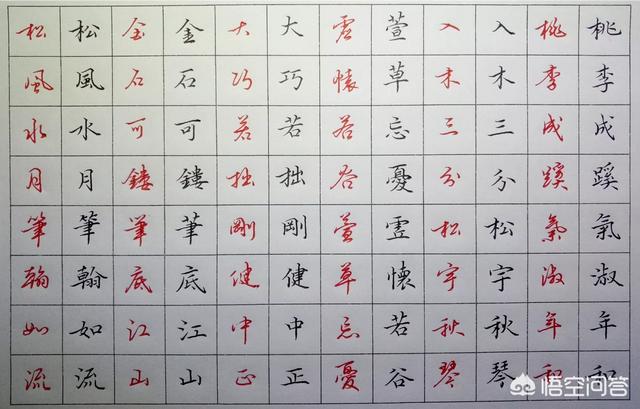 松風水月筆翰如流
松風水月筆翰如流
金石可鏤筆底江山
金石可鏤筆底江山
大巧若拙剛健中正
大巧若拙剛健中正
虛懷若谷萱草忘憂
萱草忘憂虛懷若谷
入木三分松宇秋琴
入木三分松宇秋琴
桃李成蹊氣淑年和
桃李成蹊氣淑年和
悟空问答